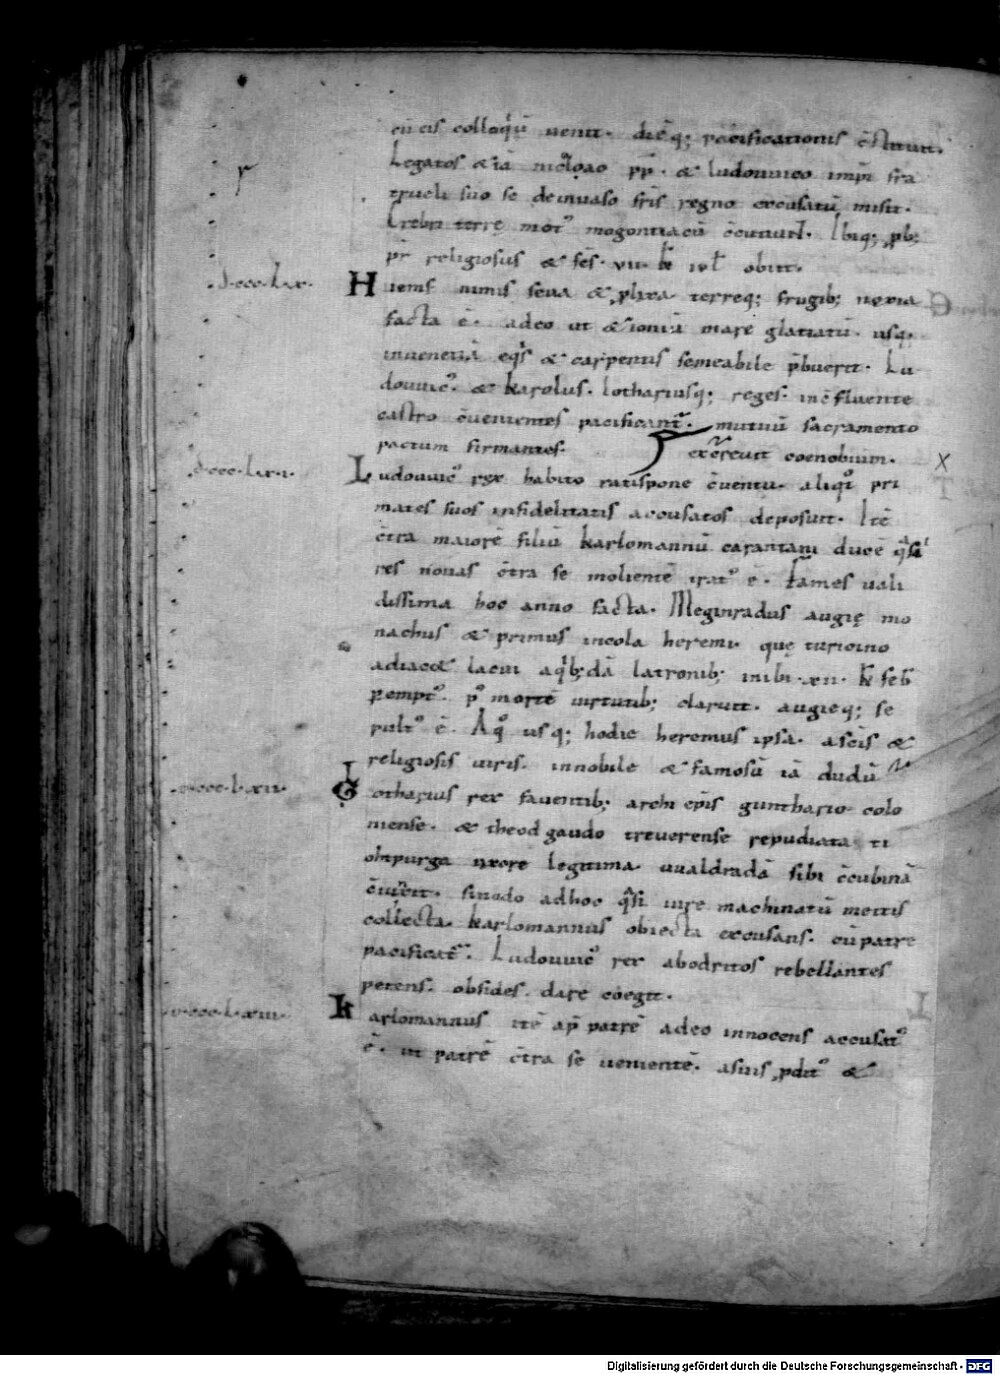 cū eis colloq̄ū uenit. diēq; pacificationis c̄stituit.
Legatos & iā nicolao pp̄. & ludouuico imp̄i fra
trueli suo se de inuaso fr̄is regno excusatū misit.
Crebri terrę mot᷒ mogontiacū
pr̄ religiosus & obiit.
.dccc.lx. Hiems nimis seua & plixa terreq; frugib; noxia
facta ē. adeo ut & ioniū mare glatiatū. usq;
eq̄s & carpentis semeabile p̄buerit. Lu
douuic᷒. & karolus. lothariusq; reges. in c̄fluente
castro c̄uenientes pacificant᷒. mutuū sacramento
pactum firmantes. coenobium. X
.dccc.lx.i. Ludouuic᷒ rex habito ratispone c̄uentu. aliq̄t pri
mates suos infidelitatis accusatos deposuit. Itē
c̄tra maiorē filiū karlomannū carantani ducē q̄si
res nouas c̄tra se molientē irat᷒ ē. fames uali
dissima hoc anno facta. Meginradus augię mo
nachus & primus incola heremi. quę turicino
adiac& lacui a q̄b;dā latronib; inibi .xii. k̄ feb̄
pempt᷒. p᷒ mortē uirtutib; claruit. augięq; se
pult᷒ ē. A q᷒ usq; hodie heremus ipsa. a sc̄is &
religiosis uiris. in nobile & famosū iā dudū
.dccc.lxii. Lotharius rex fauentib; archiep̄is gunthario colo
niense. & theodgaudo treuerense repudiata ti
&purga uxore legitima. uualdradā sibi c̄cubinā
sinodo ad hoc q̄si iure machinatū mettis
collecta. karlomannus obiecta excusans. cū patre
pacificat᷒. Ludouuic᷒ rex abodritos rebellantes
petens. obsides dare coegit.
.dccc.lxiii. Karlomannus itē ap̄ patrē adeo innocens accusat᷒
ē. ut patrē c̄tra se uenientē. a suis pdit᷒ &
Digitalisierung gefördert durch die Deutsche Forschungsgemeinschaft - DFG